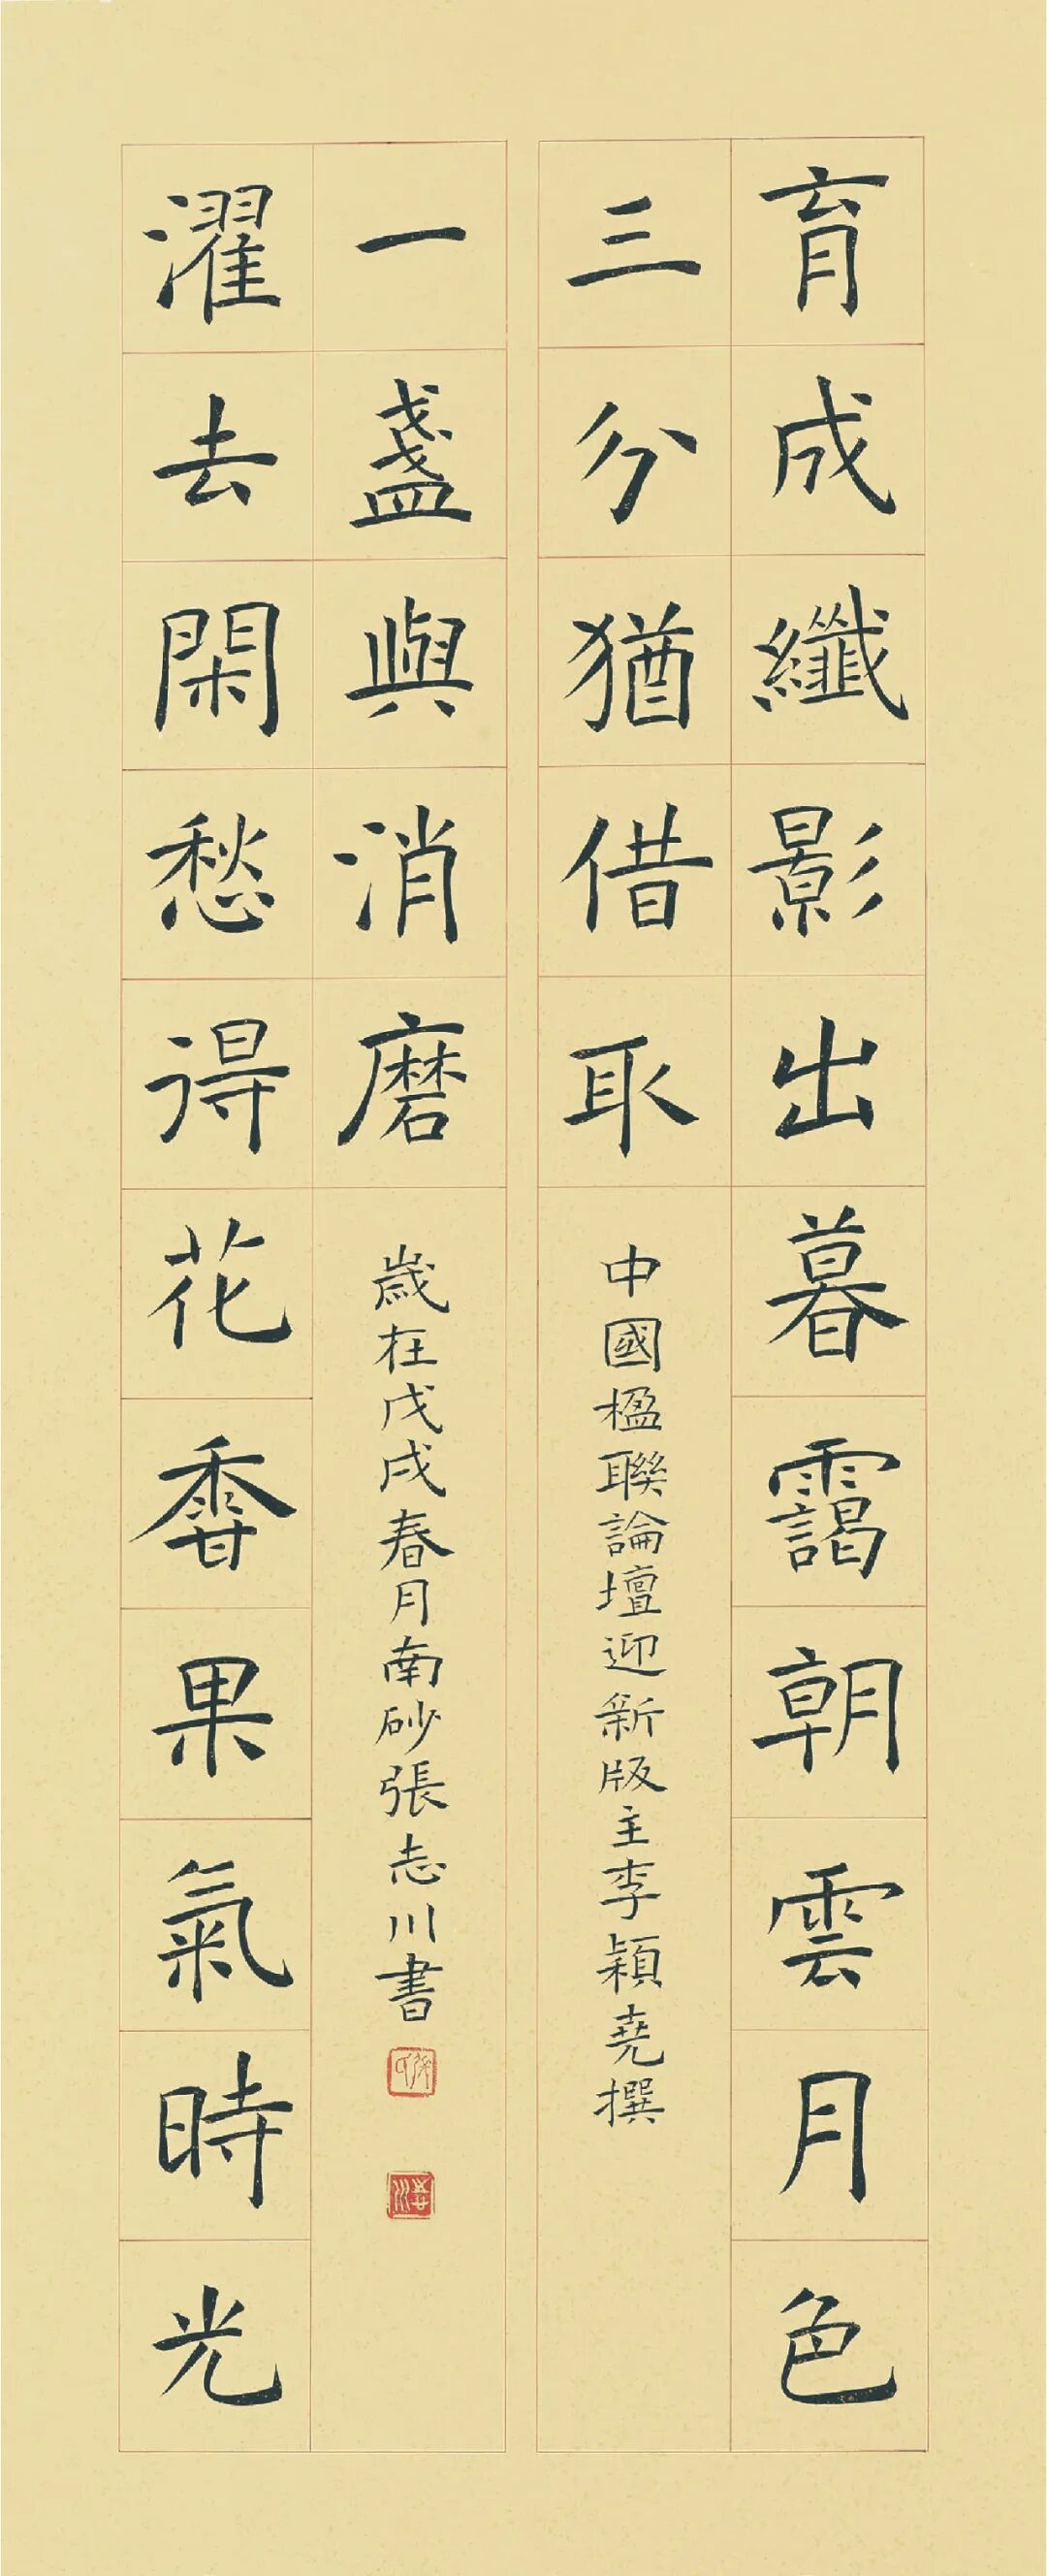 育成纖影出暮靄朝雲月色
三分猶借取
中國楹聯論壇迎新版主李穎堯撰
濯去閑愁得花香果氣時光
一盞與消磨
歲在戊戌春月南砂張志川書